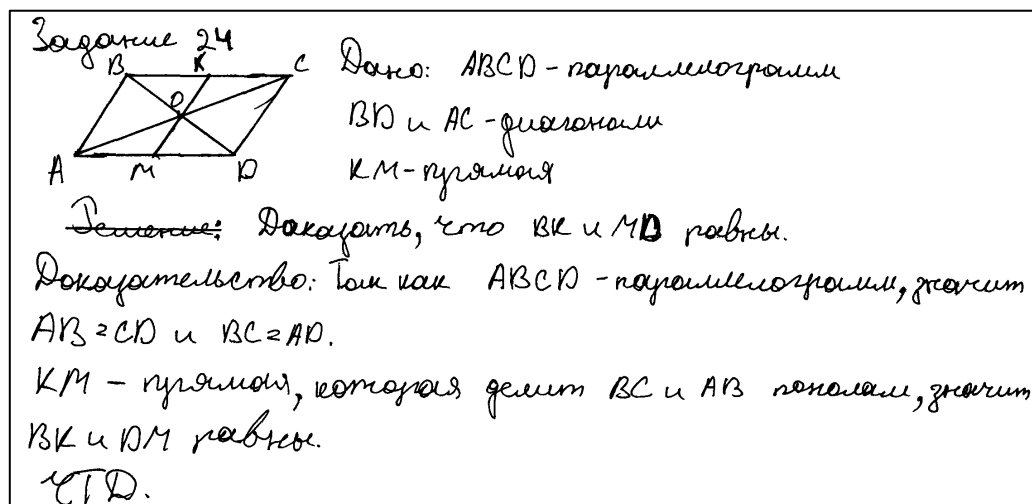 Задание 24
B K C
O
A M D
Дано: ABCD - параллелограмм
BD и AC - диагонали
KM - прямая
Решение: Доказать, что BK и MD равны.
Доказательство: Так как ABCD - параллелограмм, значит
AB = CD и BC = AD.
KM - прямая, которая делит BC и AB пополам, значит
BK и DM равны.
ЧТД.